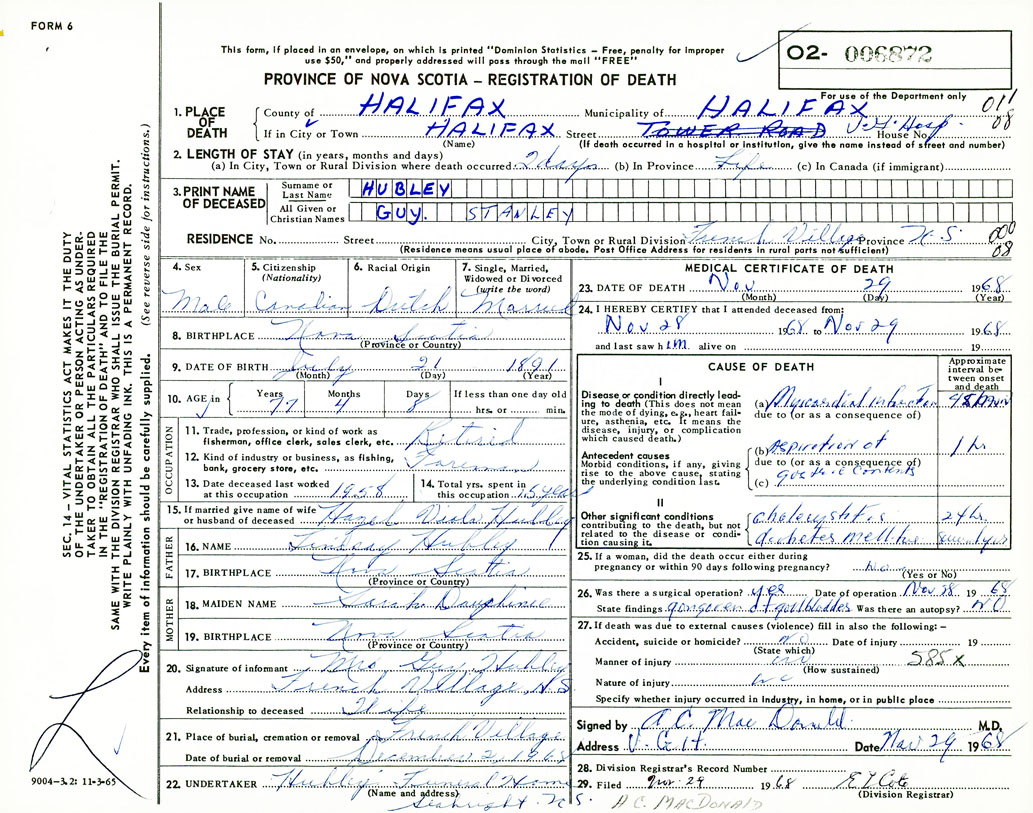 FORM 6
This form, if placed in an envelope, on which is printed "Dominion Statistics – Free, penalty for improper
use $50," and properly addressed will pass through the mail "FREE"
O2- 006872
PROVINCE OF NOVA SCOTIA – REGISTRATION OF DEATH
For use of the Department only
011
08
1. PLACE OF DEATH
County of HALIFAX Municipality of HALIFAX
If in City or Town HALIFAX Street TOWER ROAD V.G. Hosp. House No.
(Name) (If death occurred in a hospital or institution, give the name instead of street and number)
2. LENGTH OF STAY (in years, months and days)
(a) In City, Town or Rural Division where death occurred 2 days (b) In Province Life (c) In Canada (if immigrant)
3. PRINT NAME OF DECEASED
Surname or Last Name HUBLEY
All Given or Christian Names GUY. STANLEY
RESIDENCE No. Street City, Town or Rural Division French Village Province N.S. 000
(Residence means usual place of abode. Post Office Address for residents in rural parts not sufficient) 08
4. Sex Male
5. Citizenship (Nationality) Canadian
6. Racial Origin Dutch
7. Single, Married, Widowed or Divorced (write the word) Married
8. BIRTHPLACE Nova Scotia
(Province or Country)
9. DATE OF BIRTH July 21 1891
(Month) (Day) (Year)
10. AGE in Years 77 Months 4 Days 8 If less than one day old hrs. or min.
OCCUPATION
11. Trade, profession, or kind of work as fisherman, office clerk, sales clerk, etc. Retired
12. Kind of industry or business, as fishing, bank, grocery store, etc. Foreman
13. Date deceased last worked at this occupation 1958
14. Total yrs. spent in this occupation 15 years
15. If married give name of wife or husband of deceased Hazel Viola Hubley
FATHER
16. NAME Lindsay Hubley
17. BIRTHPLACE Nova Scotia
(Province or Country)
MOTHER
18. MAIDEN NAME Sarah Dauphinee
19. BIRTHPLACE Nova Scotia
(Province or Country)
20. Signature of informant Mrs Guy Hubley
Address French Village, N.S.
Relationship to deceased Wife
21. Place of burial, cremation or removal French Village
Date of burial or removal December 2, 1968
22. UNDERTAKER Hubley's Funeral Home
(Name and address) Seabright N.S.
MEDICAL CERTIFICATE OF DEATH
23. DATE OF DEATH Nov 29 1968
(Month) (Day) (Year)
24. I HEREBY CERTIFY that I attended deceased from:
Nov 28 1968 to Nov 29 1968
and last saw him alive on 19
CAUSE OF DEATH
Approximate interval between onset and death
I
Disease or condition directly leading to death (This does not mean the mode of dying, e.g., heart failure, asthenia, etc. It means the disease, injury, or complication which caused death.)
(a) Myocardial infarction 45 min
due to (or as a consequence of)
Antecedent causes
Morbid conditions, if any, giving rise to the above cause, stating the underlying condition last.
(b) Aspiration of 1 hr
due to (or as a consequence of)
(c) gastric contents
II
Other significant conditions
contributing to the death, but not related to the disease or condition causing it.
cholecystitis 24 hr.
diabetes mellitus
25. If a woman, did the death occur either during pregnancy or within 90 days following pregnancy?
(Yes or No)
26. Was there a surgical operation? yes Date of operation Nov 28 1968
State findings gangrene of gallbladder Was there an autopsy? NO
27. If death was due to external causes (violence) fill in also the following: –
Accident, suicide or homicide? no Date of injury 19
(State which)
Manner of injury 585 x
(How sustained)
Nature of injury
Specify whether injury occurred in industry, in home, or in public place
Signed by A.C. MacDonald M.D.
Address V.G.H. Date Nov 29 1968
28. Division Registrar's Record Number
29. Filed Nov. 29 1968
(Division Registrar)
A.C. MACDONALD
SEC. 14 – VITAL STATISTICS ACT MAKES IT THE DUTY
OF THE UNDERTAKER OR PERSON ACTING AS UNDER-
TAKER TO OBTAIN ALL THE PARTICULARS REQUIRED
IN THE "REGISTRATION OF DEATH" AND TO FILE THE
SAME WITH THE DIVISION REGISTRAR WHO SHALL ISSUE THE BURIAL PERMIT.
WRITE PLAINLY WITH UNFADING INK. THIS IS A PERMANENT RECORD.
Every item of information should be carefully supplied. (See reverse side for instructions.)
9004–3.2: 11-3-65